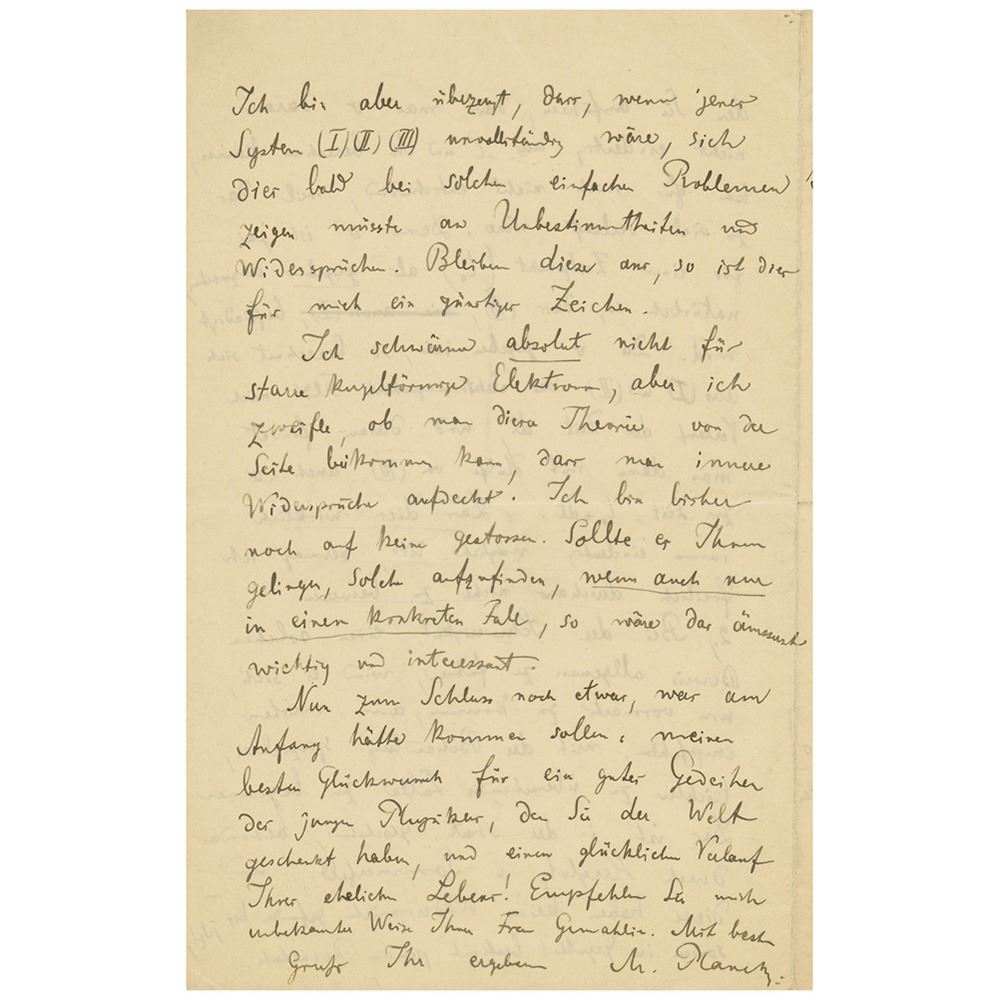 Ich bin aber überzeugt, dass, wenn jenes
System (I) (II) (III) unvollständig wäre, sich
dies bald bei solchen einfachen Problemen
zeigen müsste an Unbestimmtheiten und
Widersprüchen. Bleiben diese aus, so ist dies
für mich ein günstiges Zeichen.
Ich schwärme absolut nicht für
starre kugelförmige Elektronen, aber ich
zweifle, ob man dieser Theorie von der
Seite beikommen kann, dass man innere
Widersprüche aufdeckt. Ich bin bisher
noch auf keine gestossen. Sollte es Ihnen
gelingen, solche aufzufinden, wenn auch nur
in einem konkreten Falle, so wäre das äusserst
wichtig und interessant.
Nun zum Schluss noch etwas, was am
Anfang hätte kommen sollen: meinen
besten Glückwunsch für ein gutes Gedeihen
des jungen Physikers, den Sie der Welt
geschenkt haben, und einen glücklichen Verlauf
Ihres ehelichen Lebens! Empfehlen Sie mich
unbekannter Weise Ihrer Frau Gemahlin. Mit bestem
Gruss Ihr ergebener M. Planck.